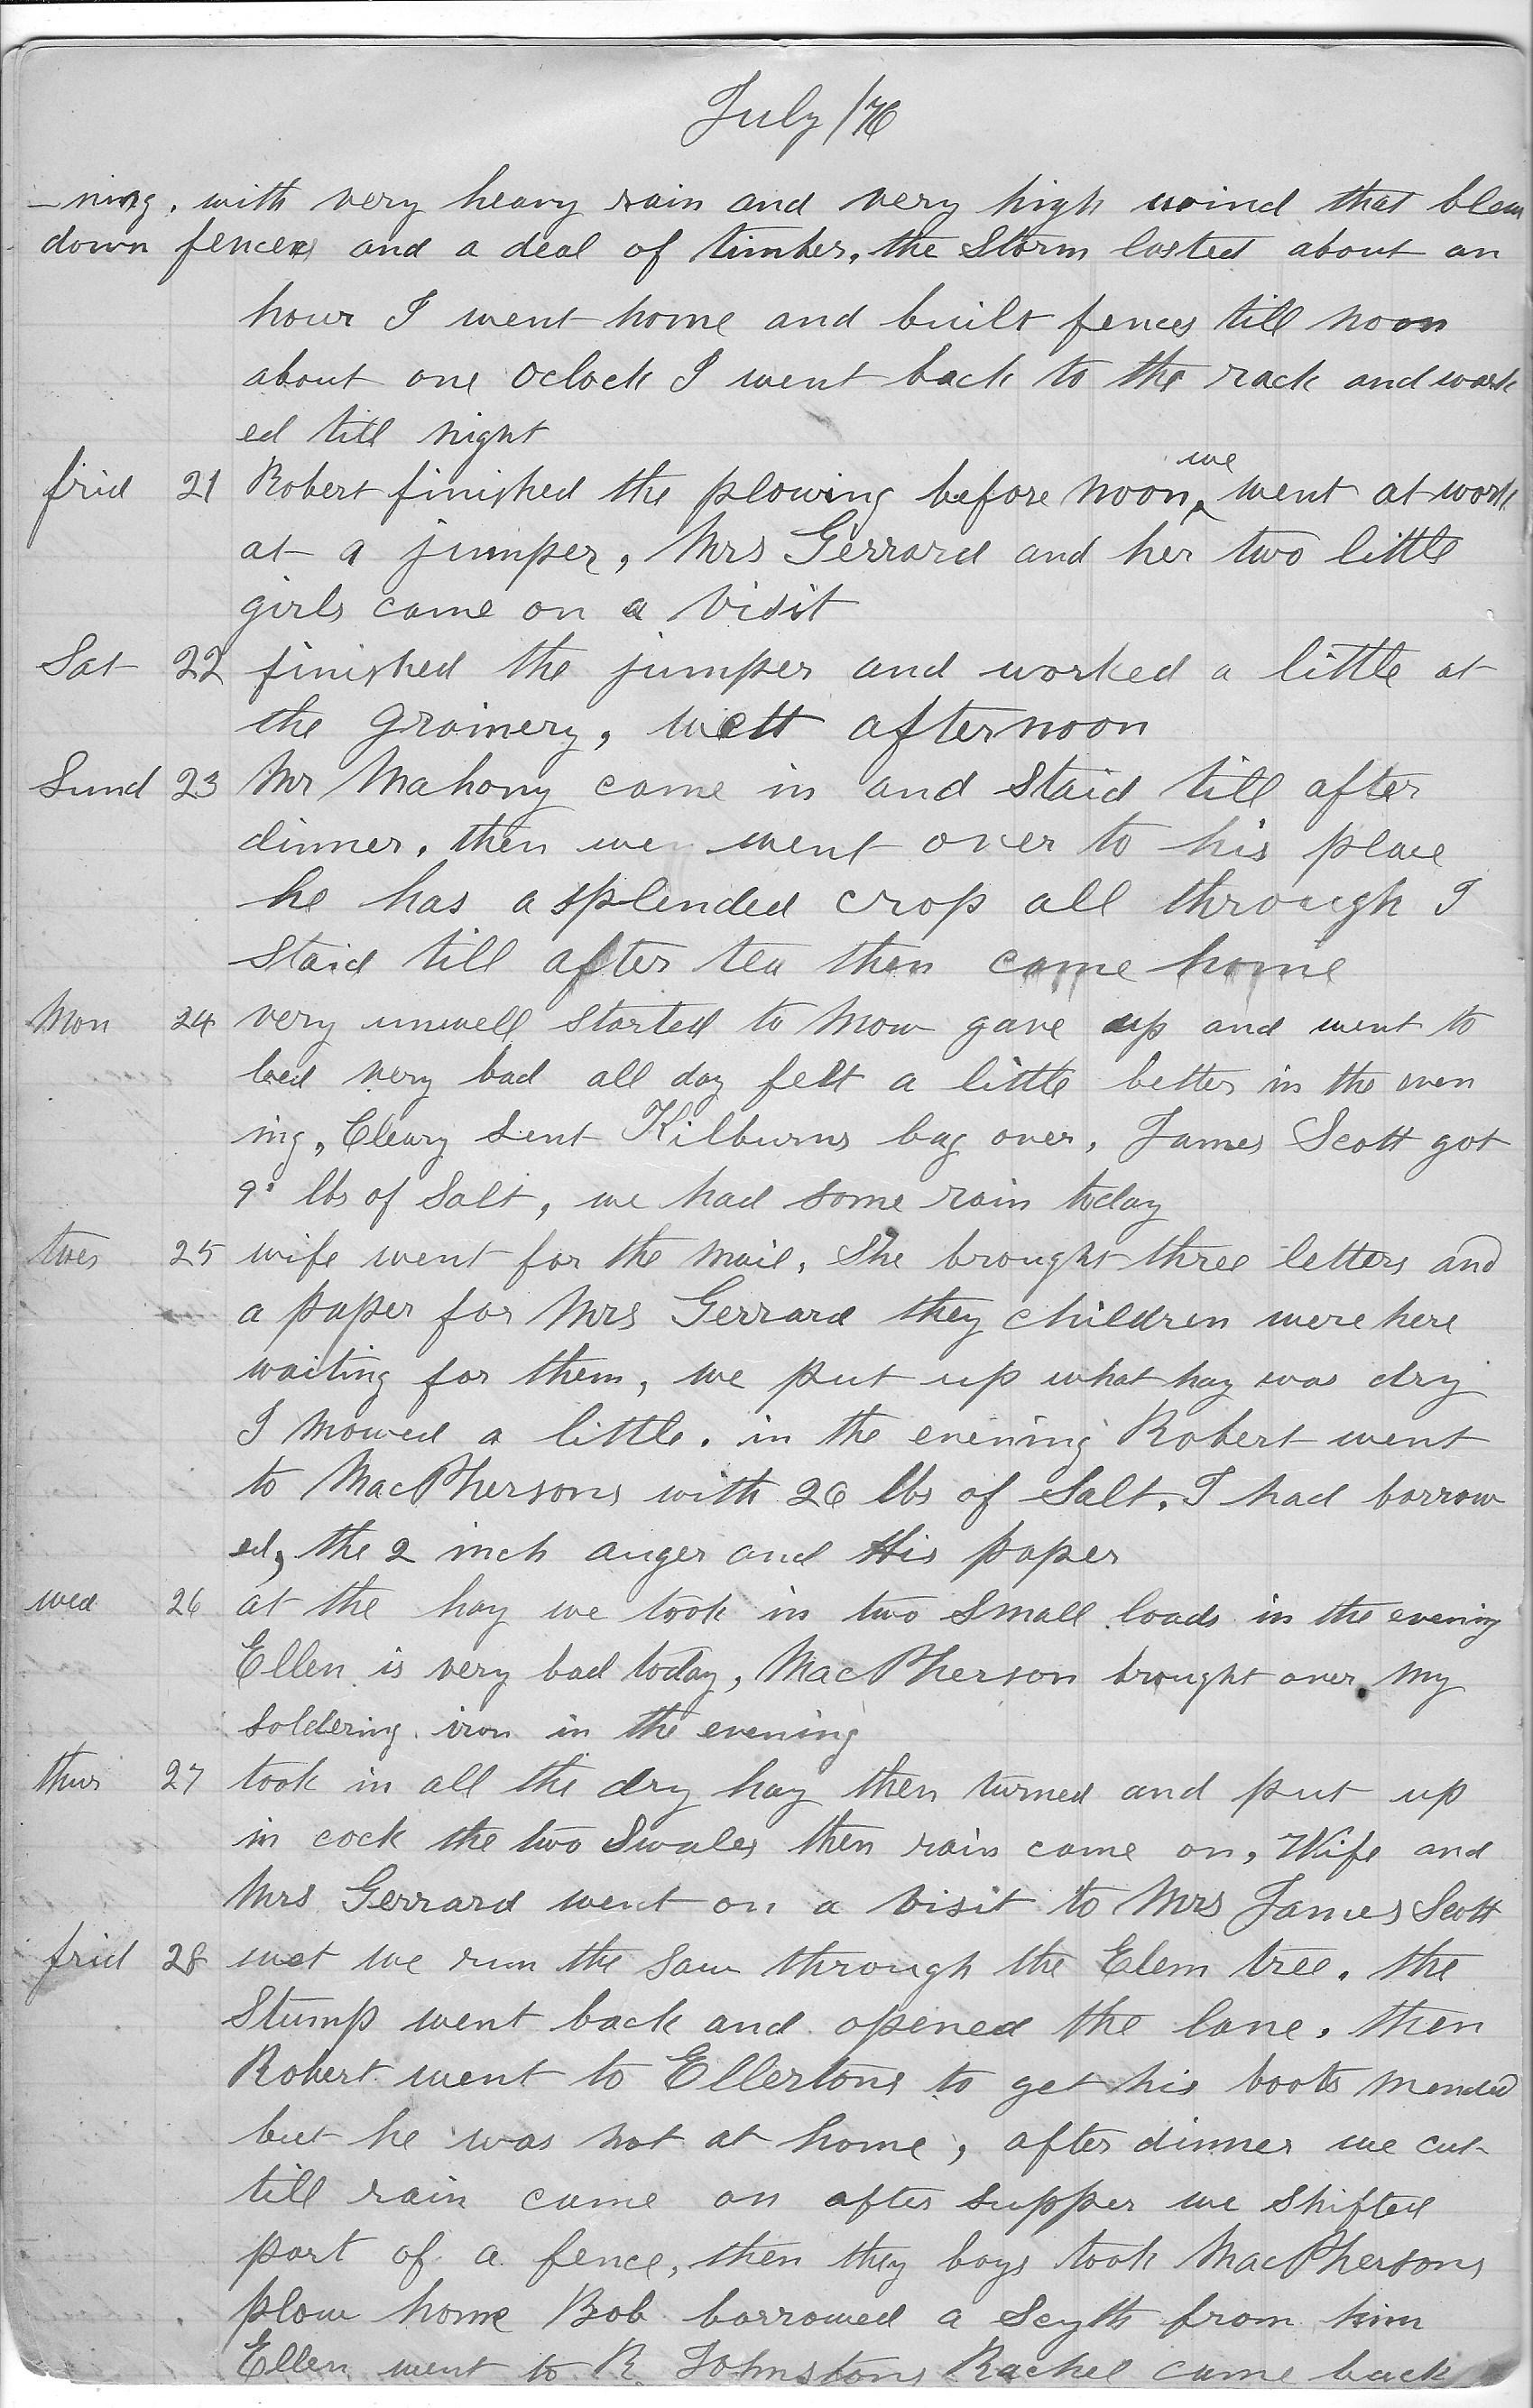 July /76
-ning, with very heavy rain and very high wind that blew
down fences and a deal of timber, the Storm lasted about an
hour I went home and built fences till noon
about one oclock I went back to the rack and work
ed till night
frid 21 Robert finished the plowing before noon, we went at work
at a jumper, Mrs Gerrard and her two little
girls came on a visit
Sat 22 finished the jumper and worked a little at
the grainery, wett afternoon
Sund 23 Mr Mahony came in and Staid till after
dinner, then we went over to his place
he has a splended crop all through I
Staid till after tea then came home
Mon 24 very unwell started to mow gave up and went to
bed very bad all day felt a little better in the even
ing, Cleary sent Kilburns bag over, James Scott got
lbs of Salt, we had some rain today
tues 25 wife went for the mail, She brought three letters and
a paper for Mrs Gerrard they children were here
waiting for them, we put up what hay was dry
I mowed a little. in the evening Robert went
to MacPhersons with 26 lbs of Salt, I had borrow
ed, the 2 inch auger and His paper
wed 26 at the hay we took in two small loads in the evening
Ellen is very bad today, MacPherson brought over my
soldering iron in the evening
thur 27 took in all the dry hay then turned and put up
in cock the two Swales then rain came on, Wife and
Mrs Gerrard went on a visit to Mrs James Scott
frid 28 wet we run the saw through the Elem tree, the
Stump went back and opened the lane, then
Robert went to Ellertons to get his boots mended
but he was not at home, after dinner we cut
till rain came on after supper we shifted
part of a fence, then they boys took MacPhersons
plow home Bob borrowed a Scyth from him
Ellen went to R. Johnstons Rachel came back